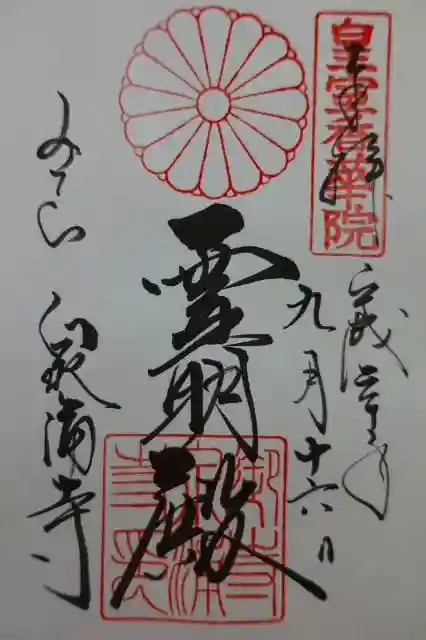 皇室香華院
奉拝
九月十六日
霊明殿
みてら 泉涌寺